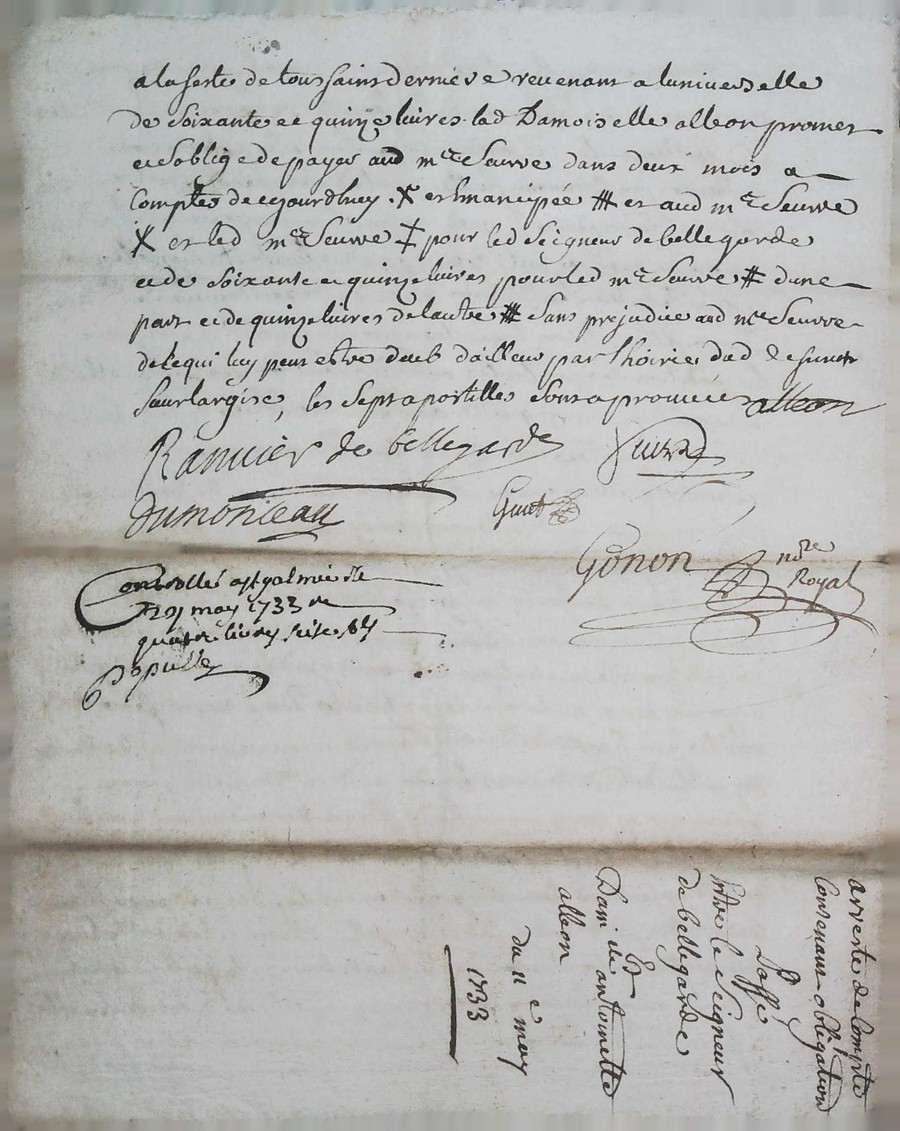 a la feste de toussains derniere revenant a luniverselle
de soixante et quinze livres lad Damoiselle alleon promet
et soblige de payer aud mre Seurre dans deux mois a
Compter de cejourdhuy. X et emancipée ⧻ et aud mre Seurre
X et led mre Seurre ‡ pour led Seigneur de bellegarde
et de soixante et quinze livres pour led mre Seurre # dune
part et de quinze livres de lautre ⧻ sans prejudice aud mre Seurre
de ce qui luy peut estre deub dailleur par lhoirie dud defunt
Saurlargise, les sept apostilles sons aprouvées alleon
Ranvier de bellegarde Seurre
dumonceau
Gonon nore
Royal
Controllé a st galmier le
21 may 1733 re
quatre livres seise sols
arreste de Compte
Contenant obligation
Passé
entre le Seigneur
de bellegarde
Et
Damlle antoinette
alleon
du 11e may
1733